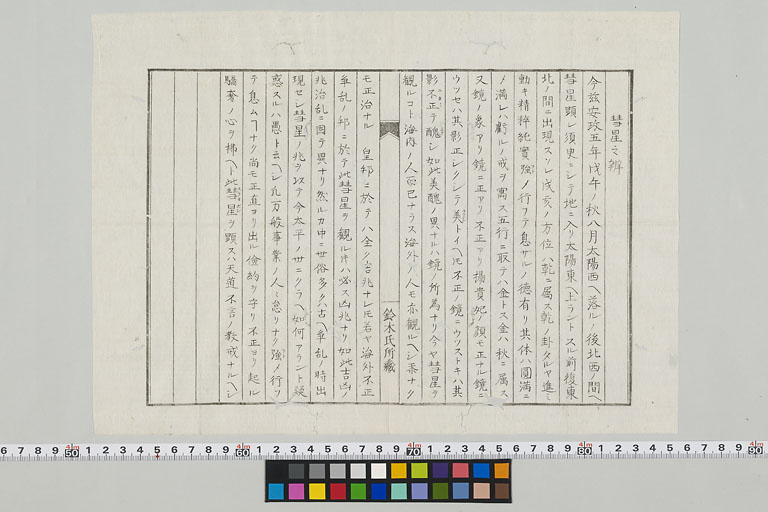 彗星之辨
今茲安政五年戊午ノ秋八月太陽西ヘ落ルノ後北西ノ間ヘ
彗星顕レ須臾ニシテ地ニ入リ太陽東ヘ上ラントスル前復東
北ノ間ニ出現スソレ戌亥ノ方位ハ乾ニ属ス乾ノ卦タルヤ進ミ
動キ精粋純實強ノ行フテ息サルノ徳有リ其体ハ圓満ニ
メ満レハ虧ルノ戒ヲ寓ス五行ニ取テハ金トス金ハ秋ニ属ス
又鏡ノ象アリ鏡ニ正アリ不正アリ揚貴妃ノ顔モ正ナル鏡ニ
ウツセハ其影正シクシテ美トイヘ𪜈不正ノ鏡ニウツストキハ其
影不正テ醜シ如此美醜ノ異ナルハ鏡ノ所為ナリ今ヤ彗星ヲ
観ルコト海内ノ人而已ナラス海外ノ人モ亦観ルヘシ業ナク
鈴木氏所蔵
モ正治ナル 皇邦ニ於テハ全ク吉兆ナレ𪜈若ヤ海外不正
争乱ノ邦ニ於テ此彗星ヲ観ル片ハ必ス凶兆ナリ如此吉凶ノ
兆治乱ニ因テ異ナリ然ルカ中ニ世俗多クハ古ヘ争乱ノ時出
現セシ彗星ノ兆ヲ以テ今太平ノ世ニクラヘ如何アラント疑
惑スルハ愚ト云ヘシ凡万般事業ノ人ミ怠リナク強メ行フ
テ息ムヿナク尚モ正直ヨリ出ル儉約ヲ守リ不正ヨリ起ル
驕奢ノ心ヲ拂ヘト此彗星ヲ顕スハ天道不言ノ教戒ナルヘシ
0 1 2 3 4 5 6 7 8 9
50 60 70 80 90